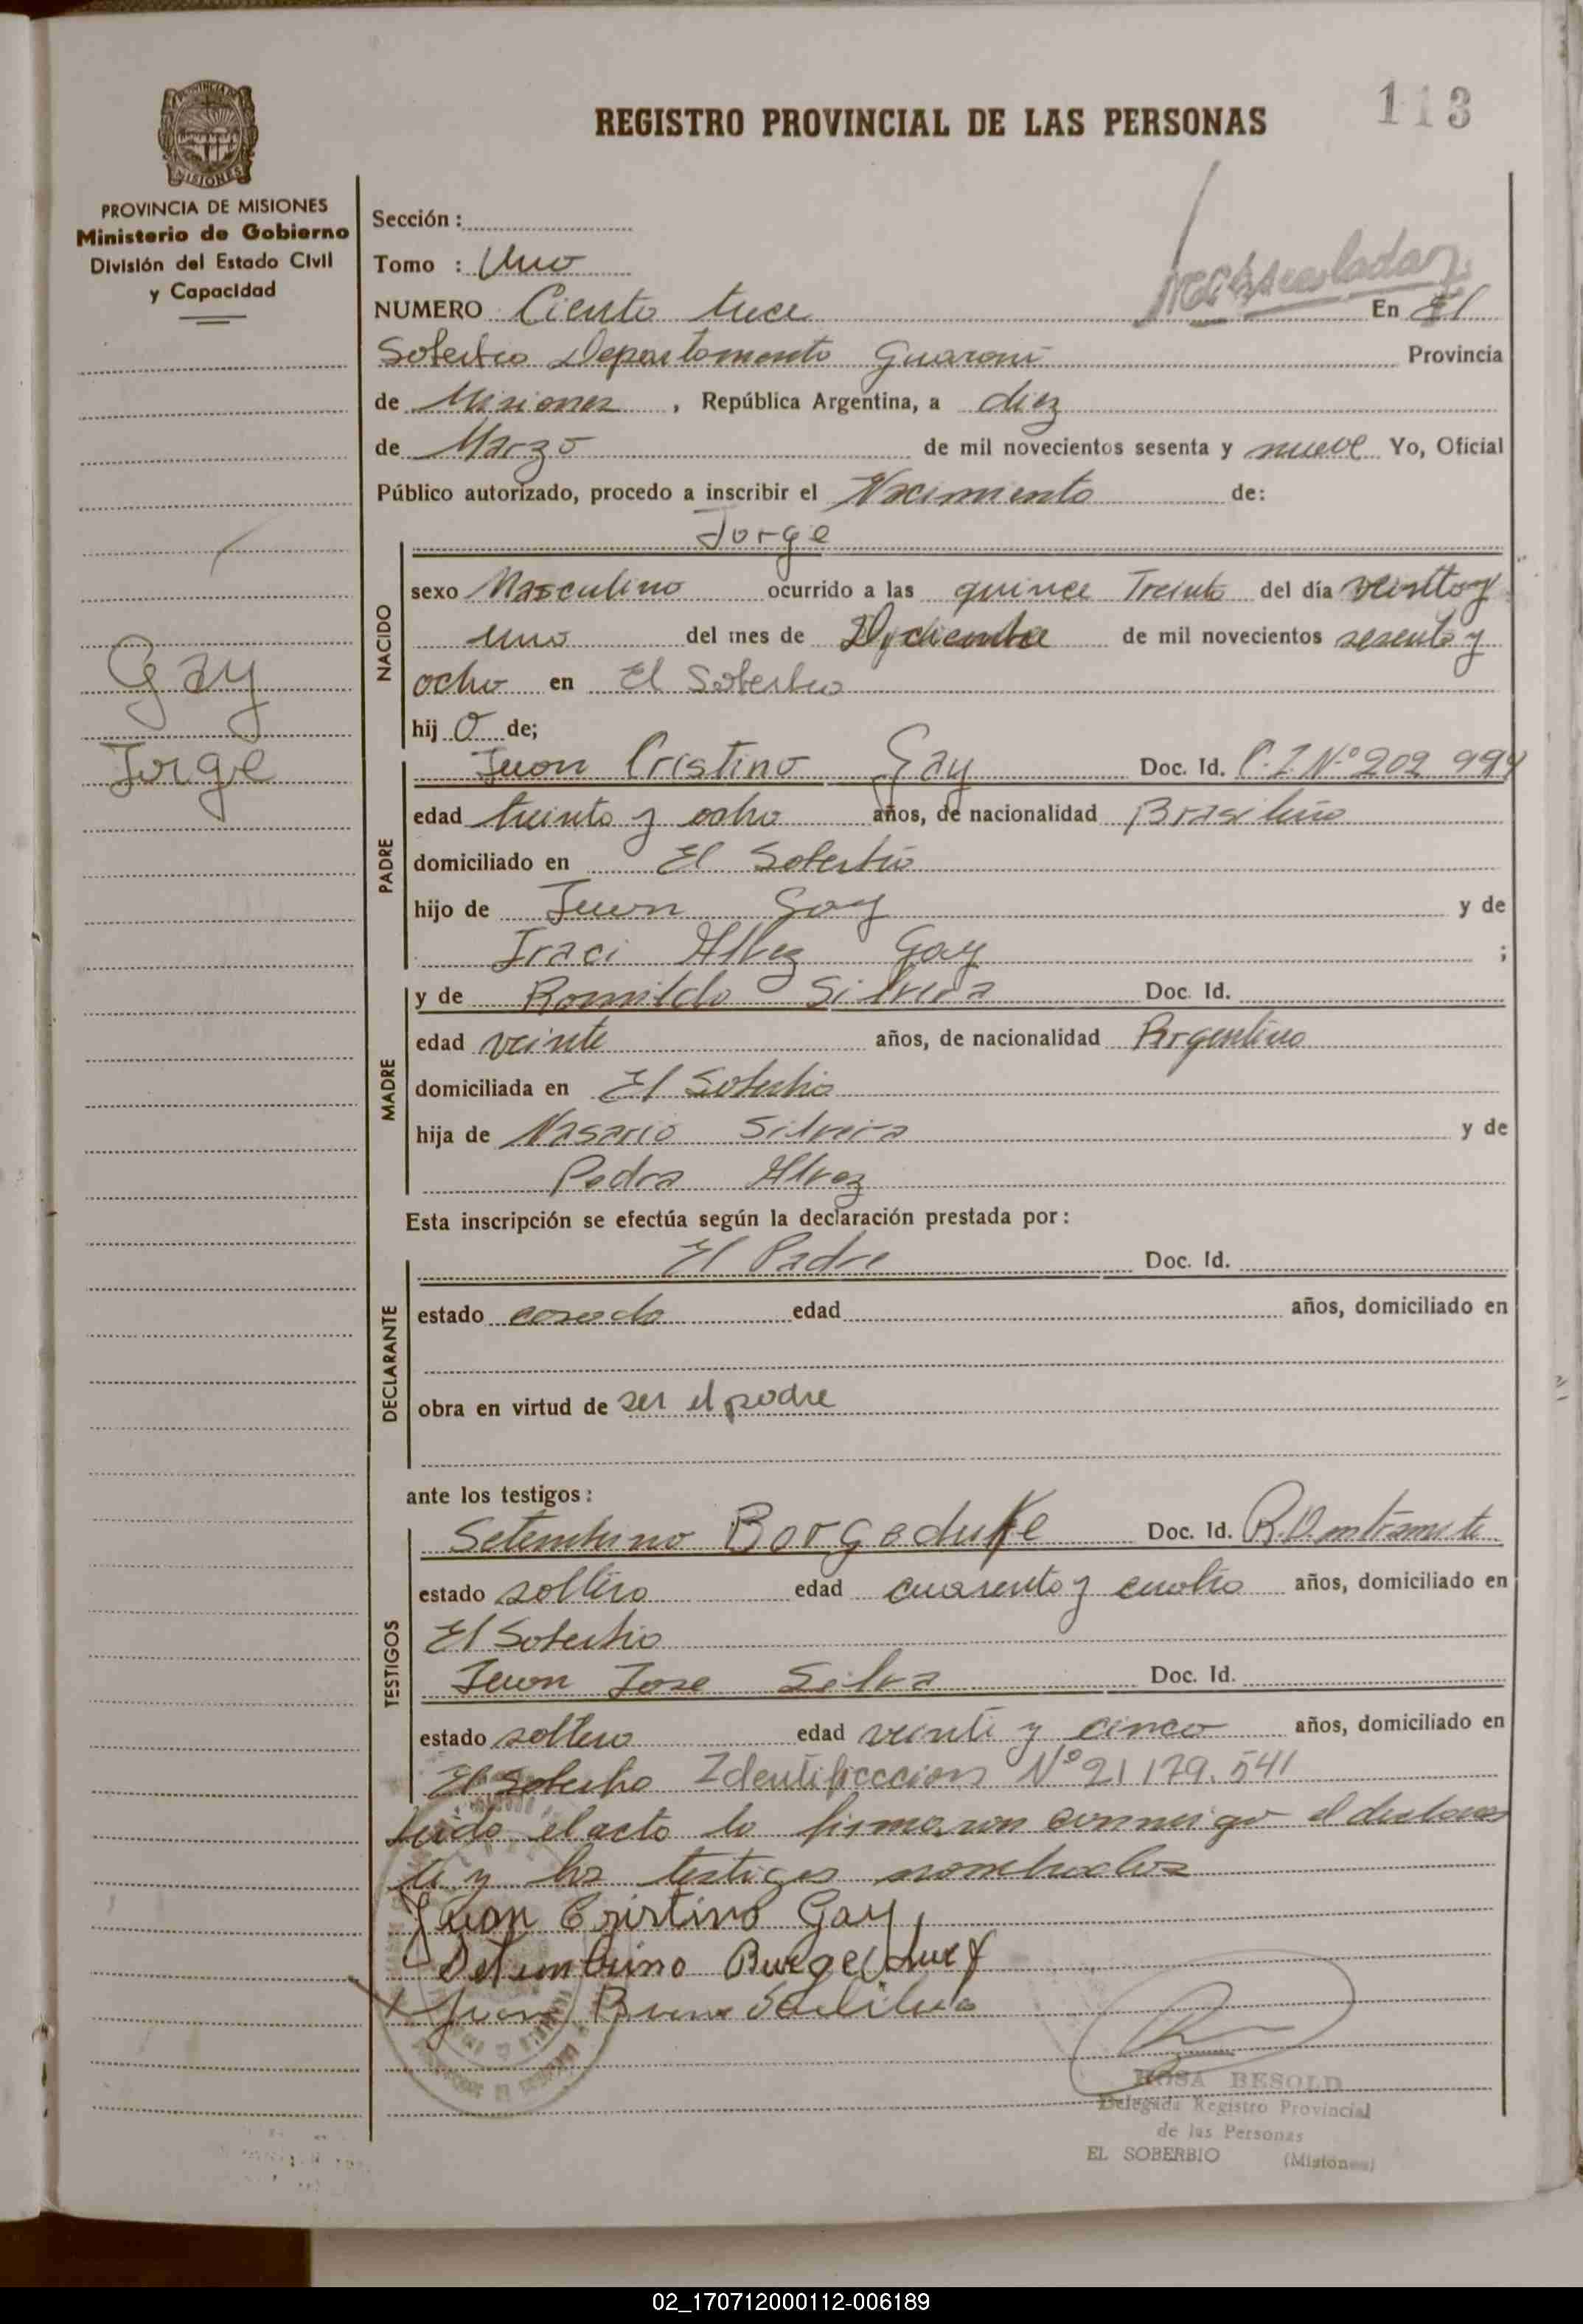 113
REGISTRO PROVINCIAL DE LAS PERSONAS
MISIONES
PROVINCIA DE MISIONES
Ministerio de Gobierno
División del Estado Civil
y Capacidad
Gay
Jorge
Sección :
Tomo : Uno
NUMERO Ciento trece En El
Soberbio Departamento Guarani Provincia
de Misiones , República Argentina, a diez
de Marzo de mil novecientos sesenta y nueve Yo, Oficial
Público autorizado, procedo a inscribir el Nacimiento de:
Jorge
NACIDO
sexo Masculino ocurrido a las quince Treinta del día veinte y
uno del mes de Diciembre de mil novecientos sesenta y
ocho en El Soberbio
hij o de;
PADRE
Juan Cristino Gay Doc. Id. C.I Nº 202 994
edad treinta y ocho años, de nacionalidad Brasileño
domiciliado en El Soberbio
hijo de Juan Gay y de
Iraci Alvez Gay ;
MADRE
y de Romilda Silveira Doc. Id.
edad veinte años, de nacionalidad Argentina
domiciliada en El Soberbio
hija de Nasario Silveira y de
Pedra Alvez
Esta inscripción se efectúa según la declaración prestada por :
DECLARANTE
El Padre Doc. Id.
estado casado edad años, domiciliado en
obra en virtud de ser el padre
ante los testigos :
TESTIGOS
Setembrino Doc. Id. en tramite
estado soltero edad cuarenta y cuatro años, domiciliado en
El Soberbio
Juan Jose Silva Doc. Id.
estado soltero edad veinte y cinco años, domiciliado en
El Soberbio Identificacion Nº 21 179.541
Leido el acto lo firmaron conmigo el declaran
te y los testigos nombrados
Juan Cristino Gay
Setembrino
Juan
ROSA BESOLD
Delegada Registro Provincial
de las Personas
EL SOBERBIO (Misiones)
02_170712000112-006189